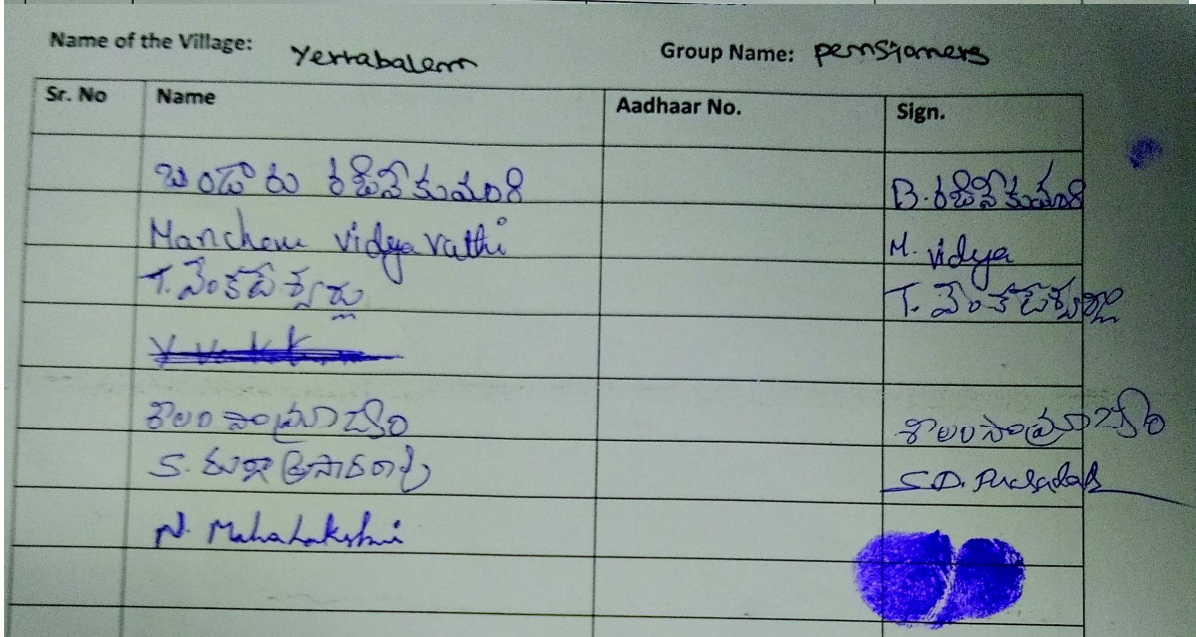 Name of the Village: Yerrabalem Group Name: pensioners
Sr. No Name Aadhaar No. Sign.
బండారు రజనీకుమారి B. రజనీకుమారి
Manchem vidyavathi M. vidya
T. వెంకటేశ్వర్లు T. వెంకటేశ్వర్లు
శీలం సామ్రాజ్యం శీలం సామ్రాజ్యం
S. దుర్గా ప్రసాదరావు S.D.
N. Mahalakshmi